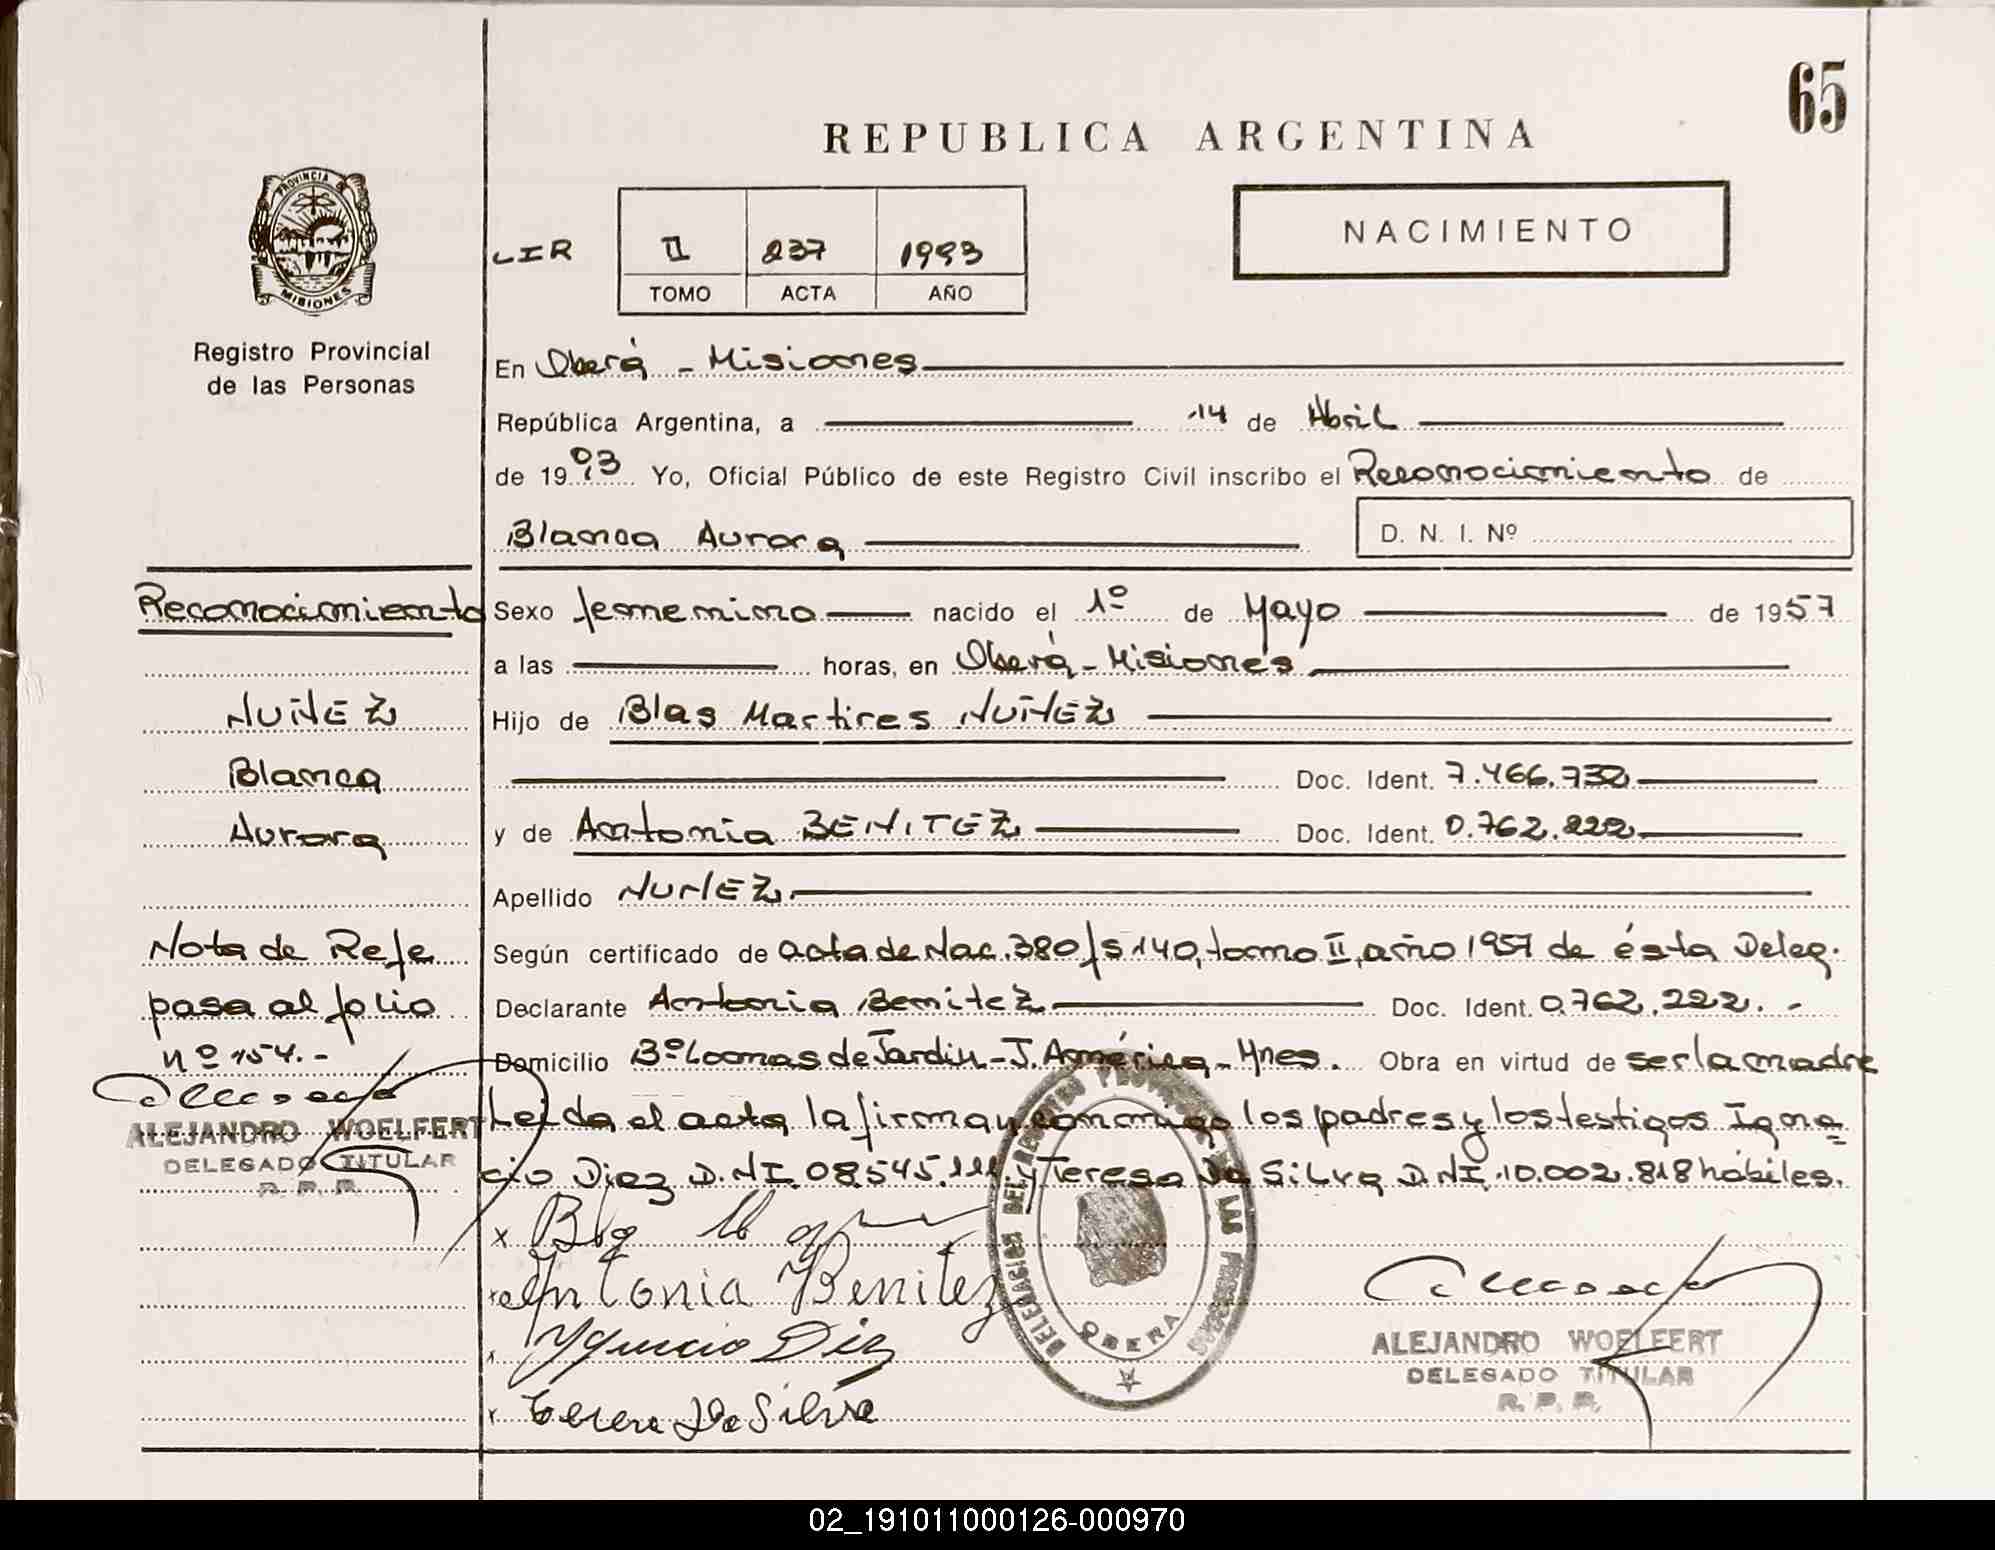 65
REPUBLICA ARGENTINA
PROVINCIA DE
MISIONES
NACIMIENTO
LIR II 237 1993
TOMO ACTA AÑO
Registro Provincial
de las Personas
En Oberá - Misiones
República Argentina, a 14 de Abril
de 1993 Yo, Oficial Público de este Registro Civil inscribo el Reconocimiento de
Blanca Aurora D. N. I. Nº
Reconocimiento
NUÑEZ
Blanca
Aurora
Nota de Refe
pasa al folio
nº 154.-
ALEJANDRO WOELFERT
DELEGADO TITULAR
R. P. P.
Sexo femenino nacido el 1º de Mayo de 1957
a las horas, en Oberá - Misiones
Hijo de Blas Martires NUÑEZ
Doc. Ident. 7.466.732
y de Antonia BENITEZ Doc. Ident. 0.762.222
Apellido NUÑEZ
Según certificado de acta de Nac. 380 fs 140, tomo II, año 1957 de ésta Deleg.
Declarante Antonia Benitez Doc. Ident. 0.762.222.-
Domicilio Bº Lomas de Jardin - J. América - Mnes. Obra en virtud de ser la madre
Leida el acta la firman conmigo los padres y los testigos Igna
cio Diez D.N.I. 08.545.111 y Teresa Da Silva D.N.I. 10.002.818 hábiles.
x
x Antonia Benitez
x Ygnacio Diez
x Teresa Da Silva
DELEGACION DEL REGISTRO PROVINCIAL DE LAS PERSONAS
OBERA
ALEJANDRO WOELFERT
DELEGADO TITULAR
R. P. P.
02_191011000126-000970